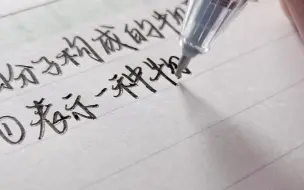 分子构成的物
①表示一种物